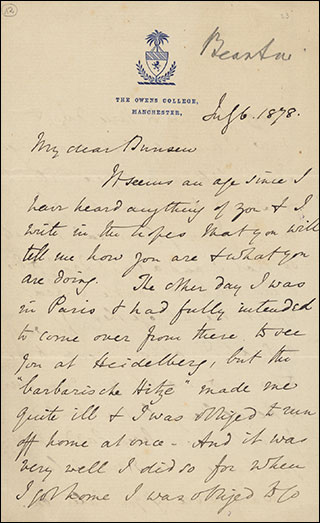 12
THE OWENS COLLEGE,
MANCHESTER,
July 6. 1878.
My dear Bunsen
It seems an age since I
have heard anything of you & I
write in the hopes that you will
tell me how you are & what you
are doing. The other day I was
in Paris & had fully intended
to come over from there to see
you at Heidelberg, but the
"barbarische Hitze" made me
quite ill & I was obliged to run
off home at once - And it was
very well I did so for when
I got home I was obliged to go